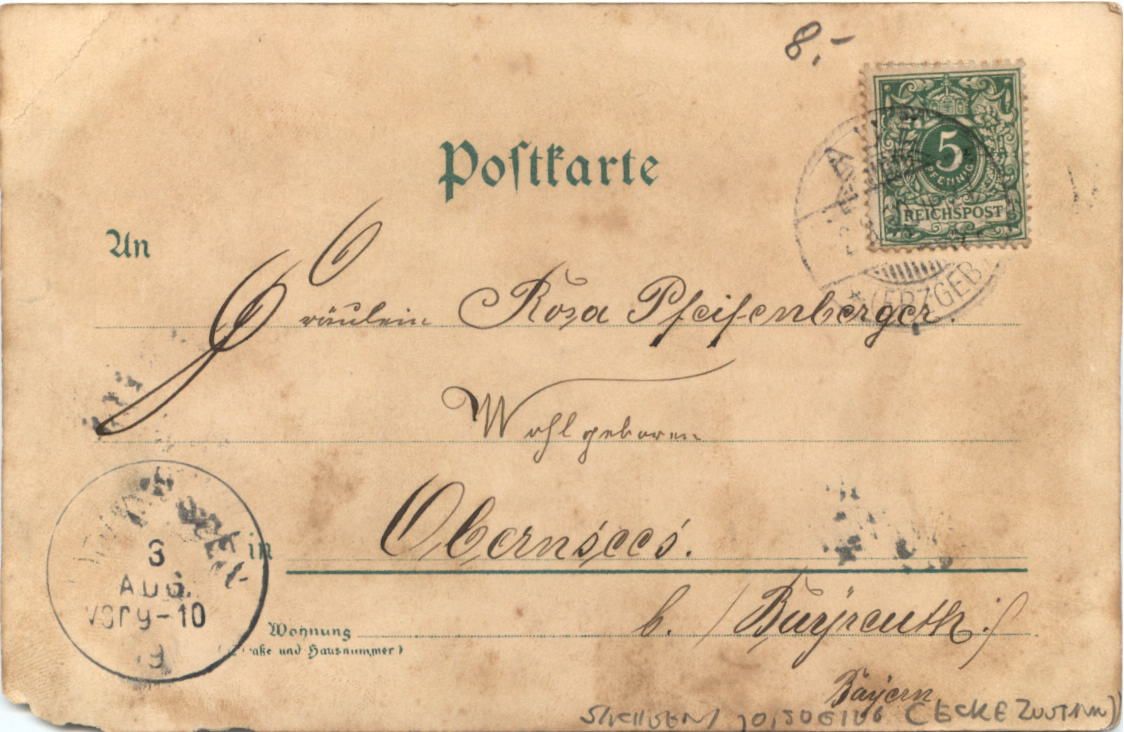 8.-
5
PFENNIG
REICHSPOST
Postkarte
AUE
* (ERZGEB
An
Fräulein Rosa Pfeifenberger.
Wohlgeboren
in Obernsees.
3
AUG.
Vor 9-10
b. /Bayreuth./
Wohnung
(Straße und Hausnummer)
Bayern
SACHSEN/ (ECKE